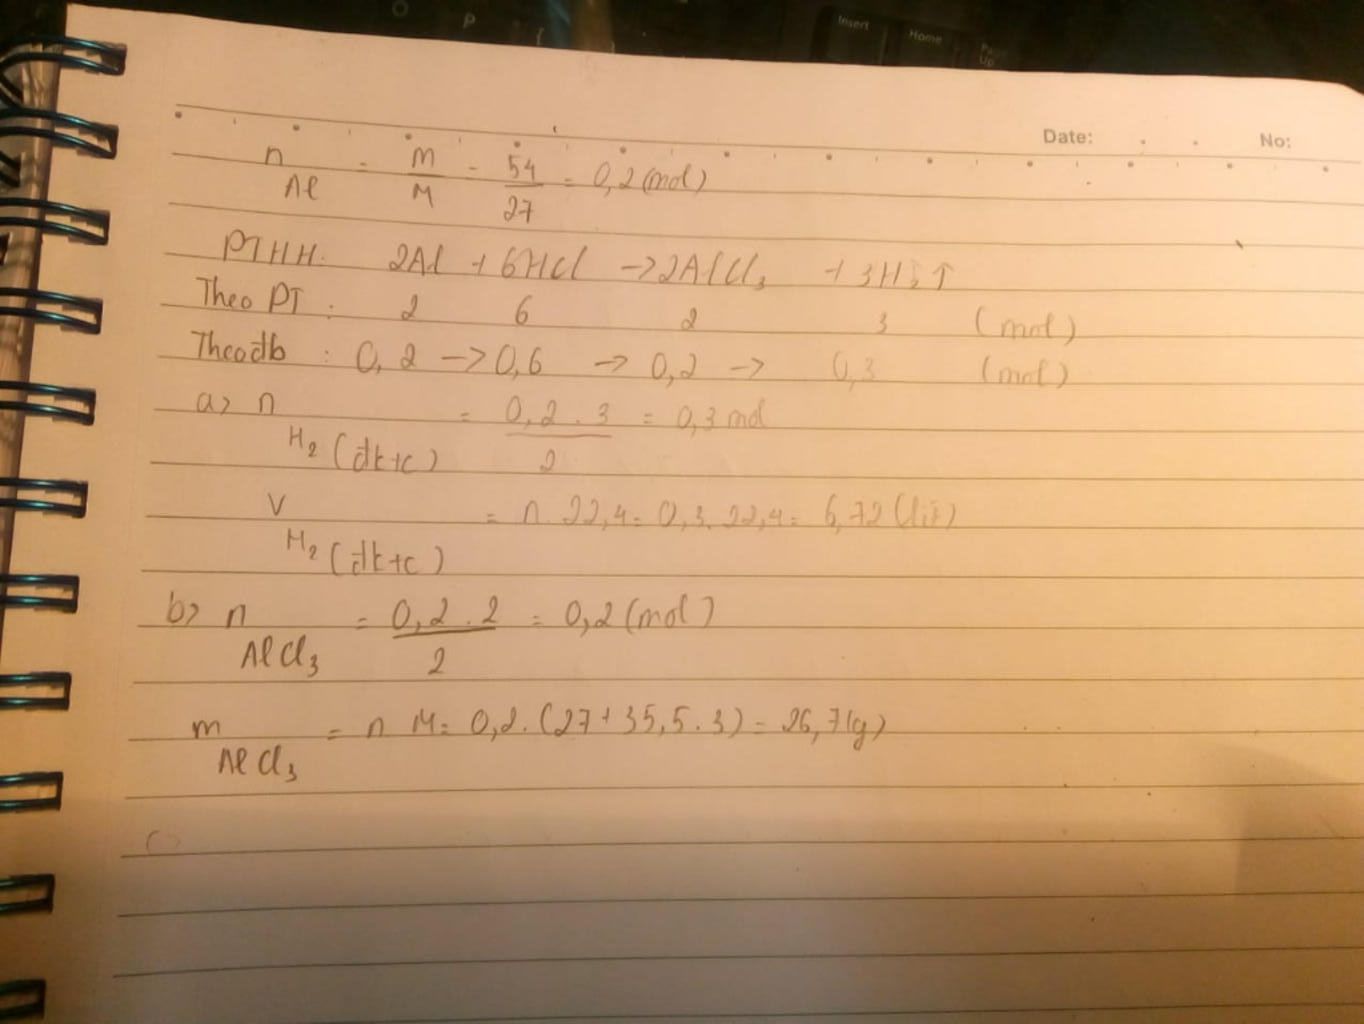 Insert Home Page Up
P
Date: No:
n Al = m/M = 54/27 = 0,2 (mol)
PTHH: 2Al + 6HCl -> 2AlCl3 + 3H2↑
Theo PT : 2 6 2 3 (mol)
Theo đb : 0,2 -> 0,6 -> 0,2 -> 0,3 (mol)
a> n H2 (đktc) = 0,2 . 3 / 2 = 0,3 mol
V H2 (đktc) = n . 22,4 = 0,3 . 22,4 = 6,72 (lít)
b> n AlCl3 = 0,2 . 2 / 2 = 0,2 (mol)
m AlCl3 = n M = 0,2 . (27 + 35,5 . 3) = 26,7 (g)